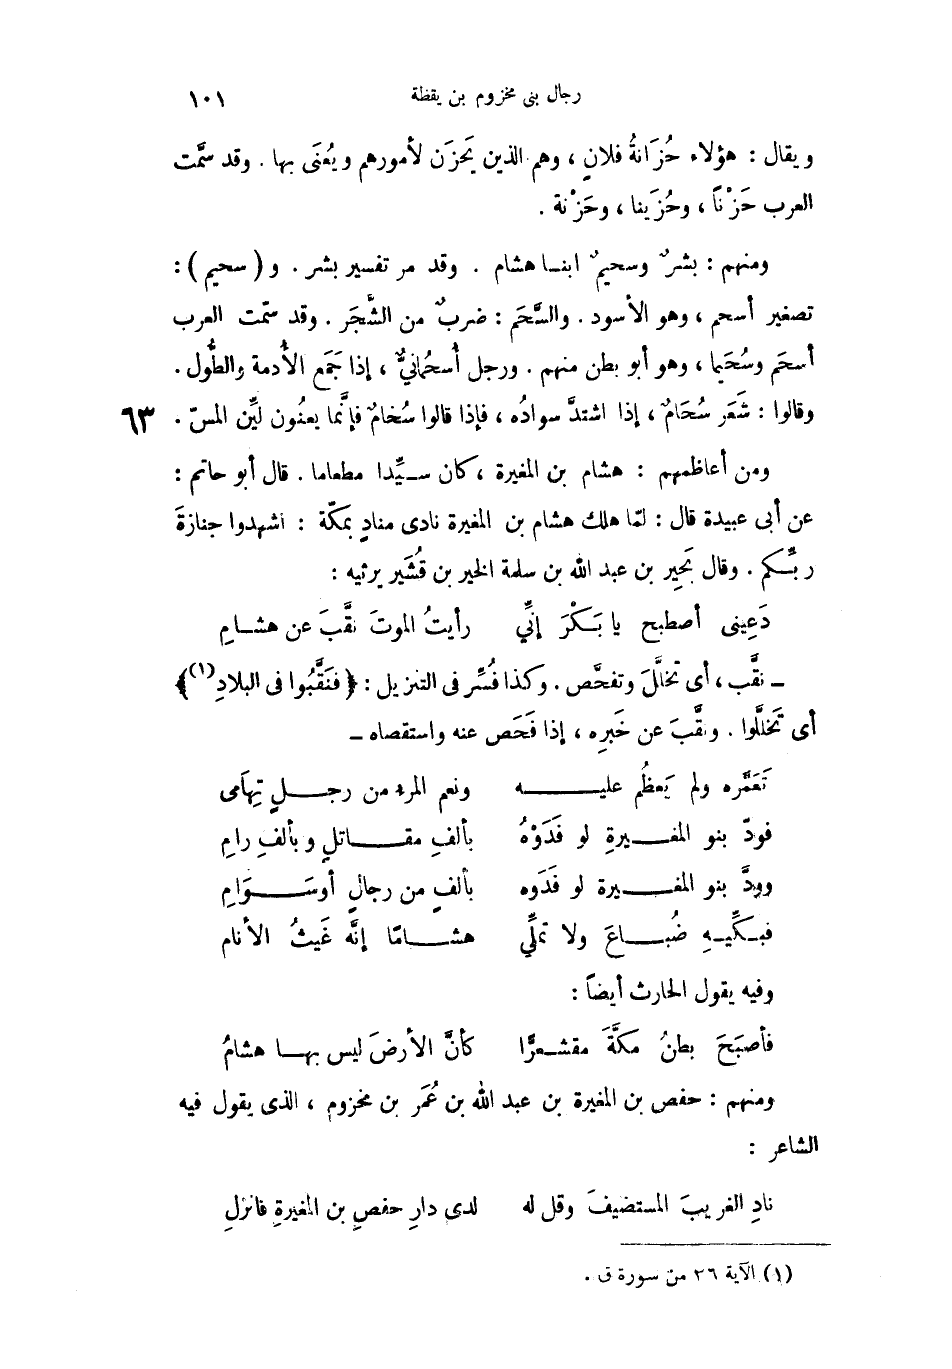 رجال بنى مخزوم بن يقظة ١٠١
ويقال : هؤلاء حُزَانةُ فلانٍ ، وهم الذين يَحزَن لأمورهم ويُعنَى بها . وقد سمَّت
العرب حَزْناً ، وحُزَينا ، وحَزْنة .
ومنهم : بشرٌ وسحيمٌ ابنا هشام . وقد مر تفسير بشر . و ( سحيم ) :
تصغير أسحم ، وهو الأسود . والسَّحَم : ضربٌ من الشَّجَر . وقد سمَّت العرب
أسحَم وسُحَيما ، وهو أبو بطن منهم . ورجل أُسحُمانيٌّ ، إذا جَمَع الأُدمة والطُّول .
وقالوا : شَعَر سُحَامٌ ، إذا اشتدَّ سوادُه ، فإذا قالوا سُخامٌ فإنَّما يعنُون ليِّن المسّ . ٦٣
ومن أعاظمهم : هشام بن المغيرة ، كان سيِّدا مطعاما . قال أبو حاتم :
عن أبى عبيدة قال : لمّا هلك هشام بن المغيرة نادى منادٍ بمكّة : اشهدوا جنازةَ
ربِّكم . وقال بَحِير بن عبد الله بن سلمة الخير بن قُشَير يرثيه :
دَعِينى أصطبح يا بَكْرَ إنِّي رأيتُ الموتَ نقَّبَ عن هشامِ
ـ نقَّب ، أى تخلَّلَ وتفحَّص . وكذا فُسِّر فى التنزيل : ﴿ فنَقَّبُوا فى البلادِ (١) ﴾
أى تَخلَّلوا . ونقَّبَ عن خَبرِه ، إذا فَحَص عنه واستقصاه ـ
تَعَمَّره ولم يَعظُم عليه ونعم المرء من رجلٍ تِهَامى
فودّ بنو المغيرةِ لو فَدَوْهُ بألفِ مقاتلٍ وبألفِ رامِ
وودَّ بنو المغيرة لو فَدَوه بألفٍ من رجالٍ أوسَوَامِ
فبكِّيهِ ضُباعَ ولا تملِّي هشامًا إنَّه غَيثُ الأنام
وفيه يقول الحارث أيضاً :
فأصبَحَ بطنُ مكَّةَ مقشعرًّا كأنَّ الأرضَ ليس بها هشامُ
ومنهم : حفص بن المغيرة بن عبد الله بن عُمَر بن مخزوم ، الذى يقول فيه
الشاعر :
نادِ الغريبَ المستضيفَ وقل له لدى دارِ حفصِ بن المغيرةِ فانزلِ
(١) الآية ٣٦ من سورة ق .